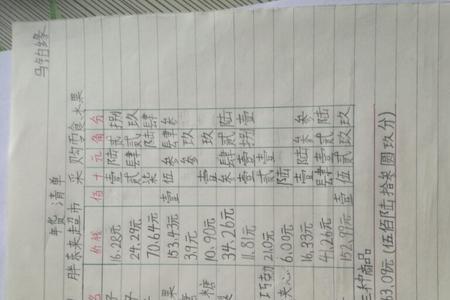 马铂缘
年货清单
胖东来超市 采购零食水果
价钱 佰 十 元 角 分
子 16.28元 壹 陆 贰 捌
子 24.29元 贰 肆 贰 玖
70.64元 柒 陆 肆
果 153.43元 壹 伍 叁 肆 叁
3.9元 叁 玖
糖 10.90元 壹 玖
34.26元 叁 肆 贰 陆
11.81元 壹 壹 捌 壹
210元 贰 壹
夹心 6.00元 陆
16.33元 壹 陆 叁 叁
41.26元 肆 壹 贰 陆
152.99元 壹 伍 贰 玖 玖
三种商品
63.09元 (伍佰陆拾叁圆玖分)